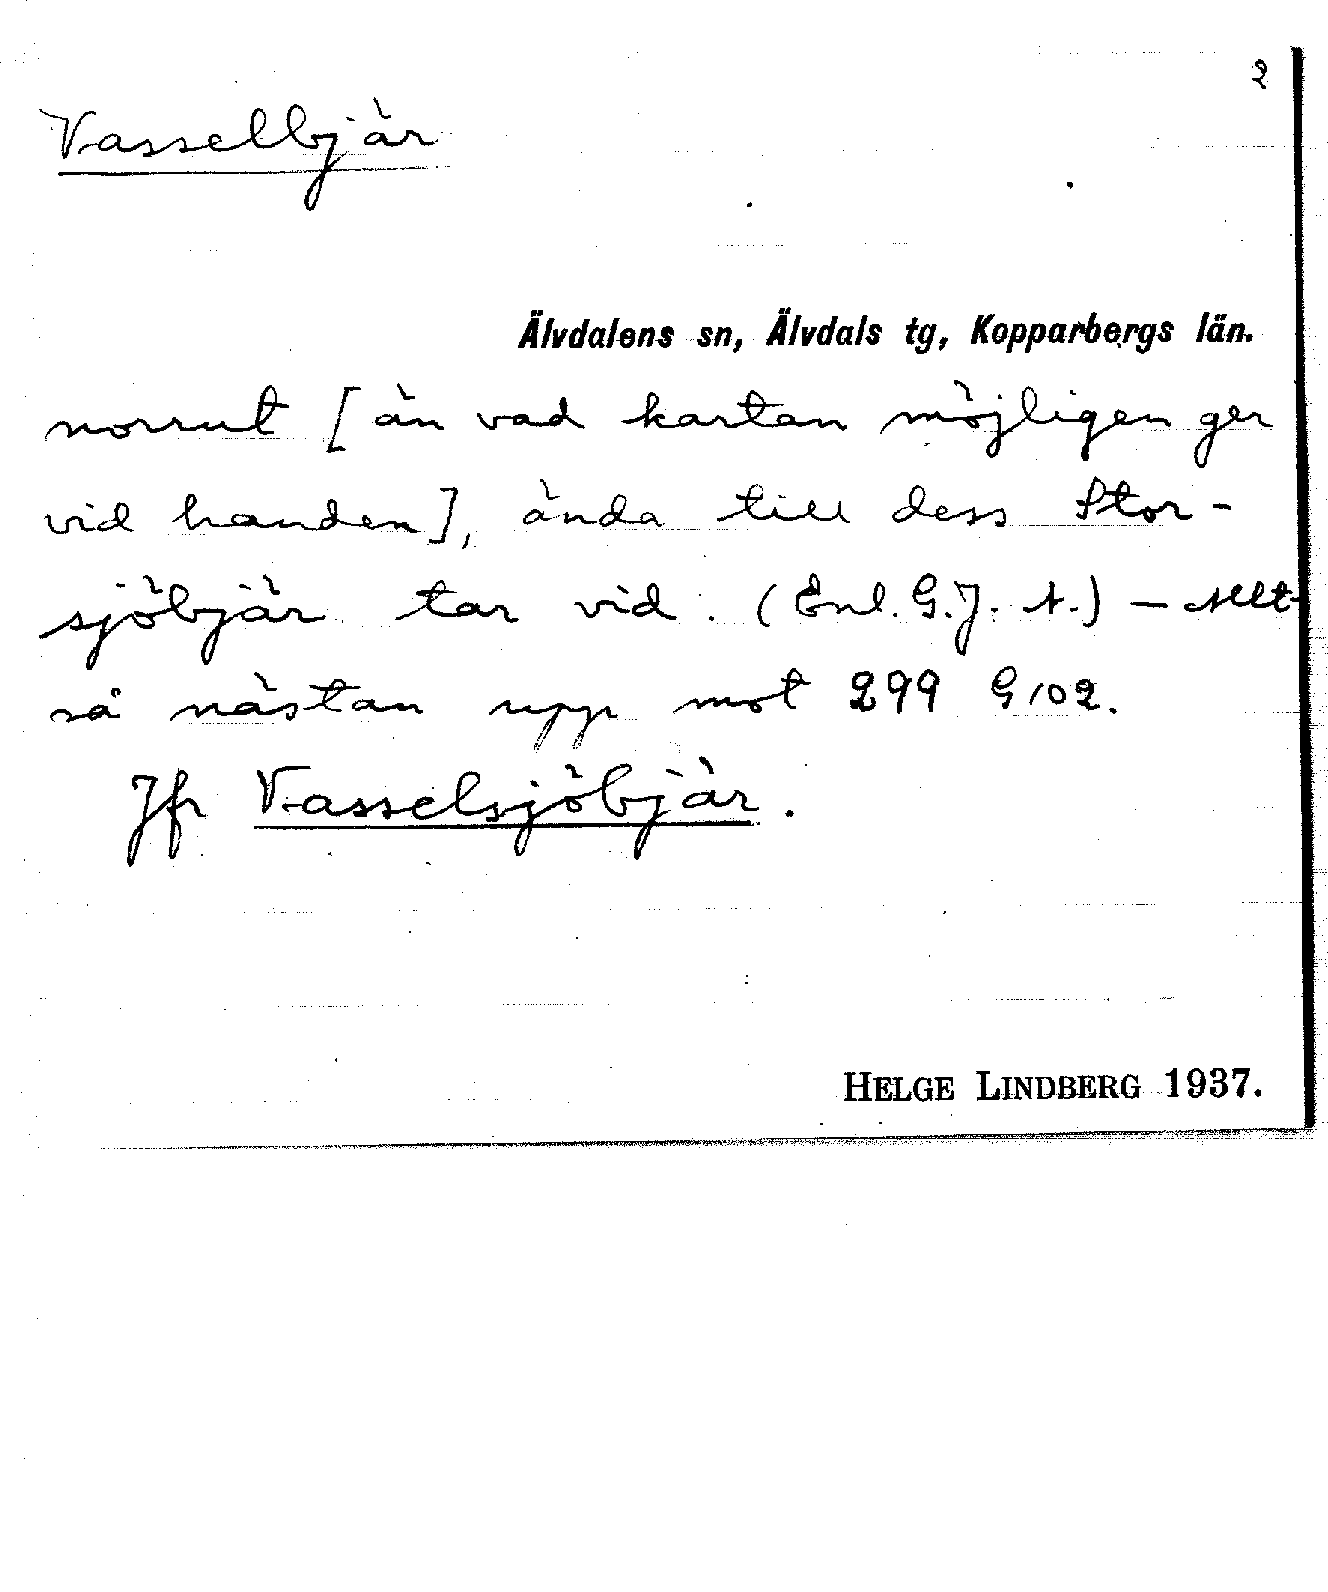 2
Vasselbjär
Älvdalens sn, Älvdals tg, Kopparbergs län.
norrut [än vad kartan möjligen ger
vid handen], ända till dess Stor-
sjöbjär tar vid. (Enl. G.J. A.) – Allt-
så nästan upp mot 299 G 102.
Jfr Vasselsjöbjär.
HELGE LINDBERG 1937.